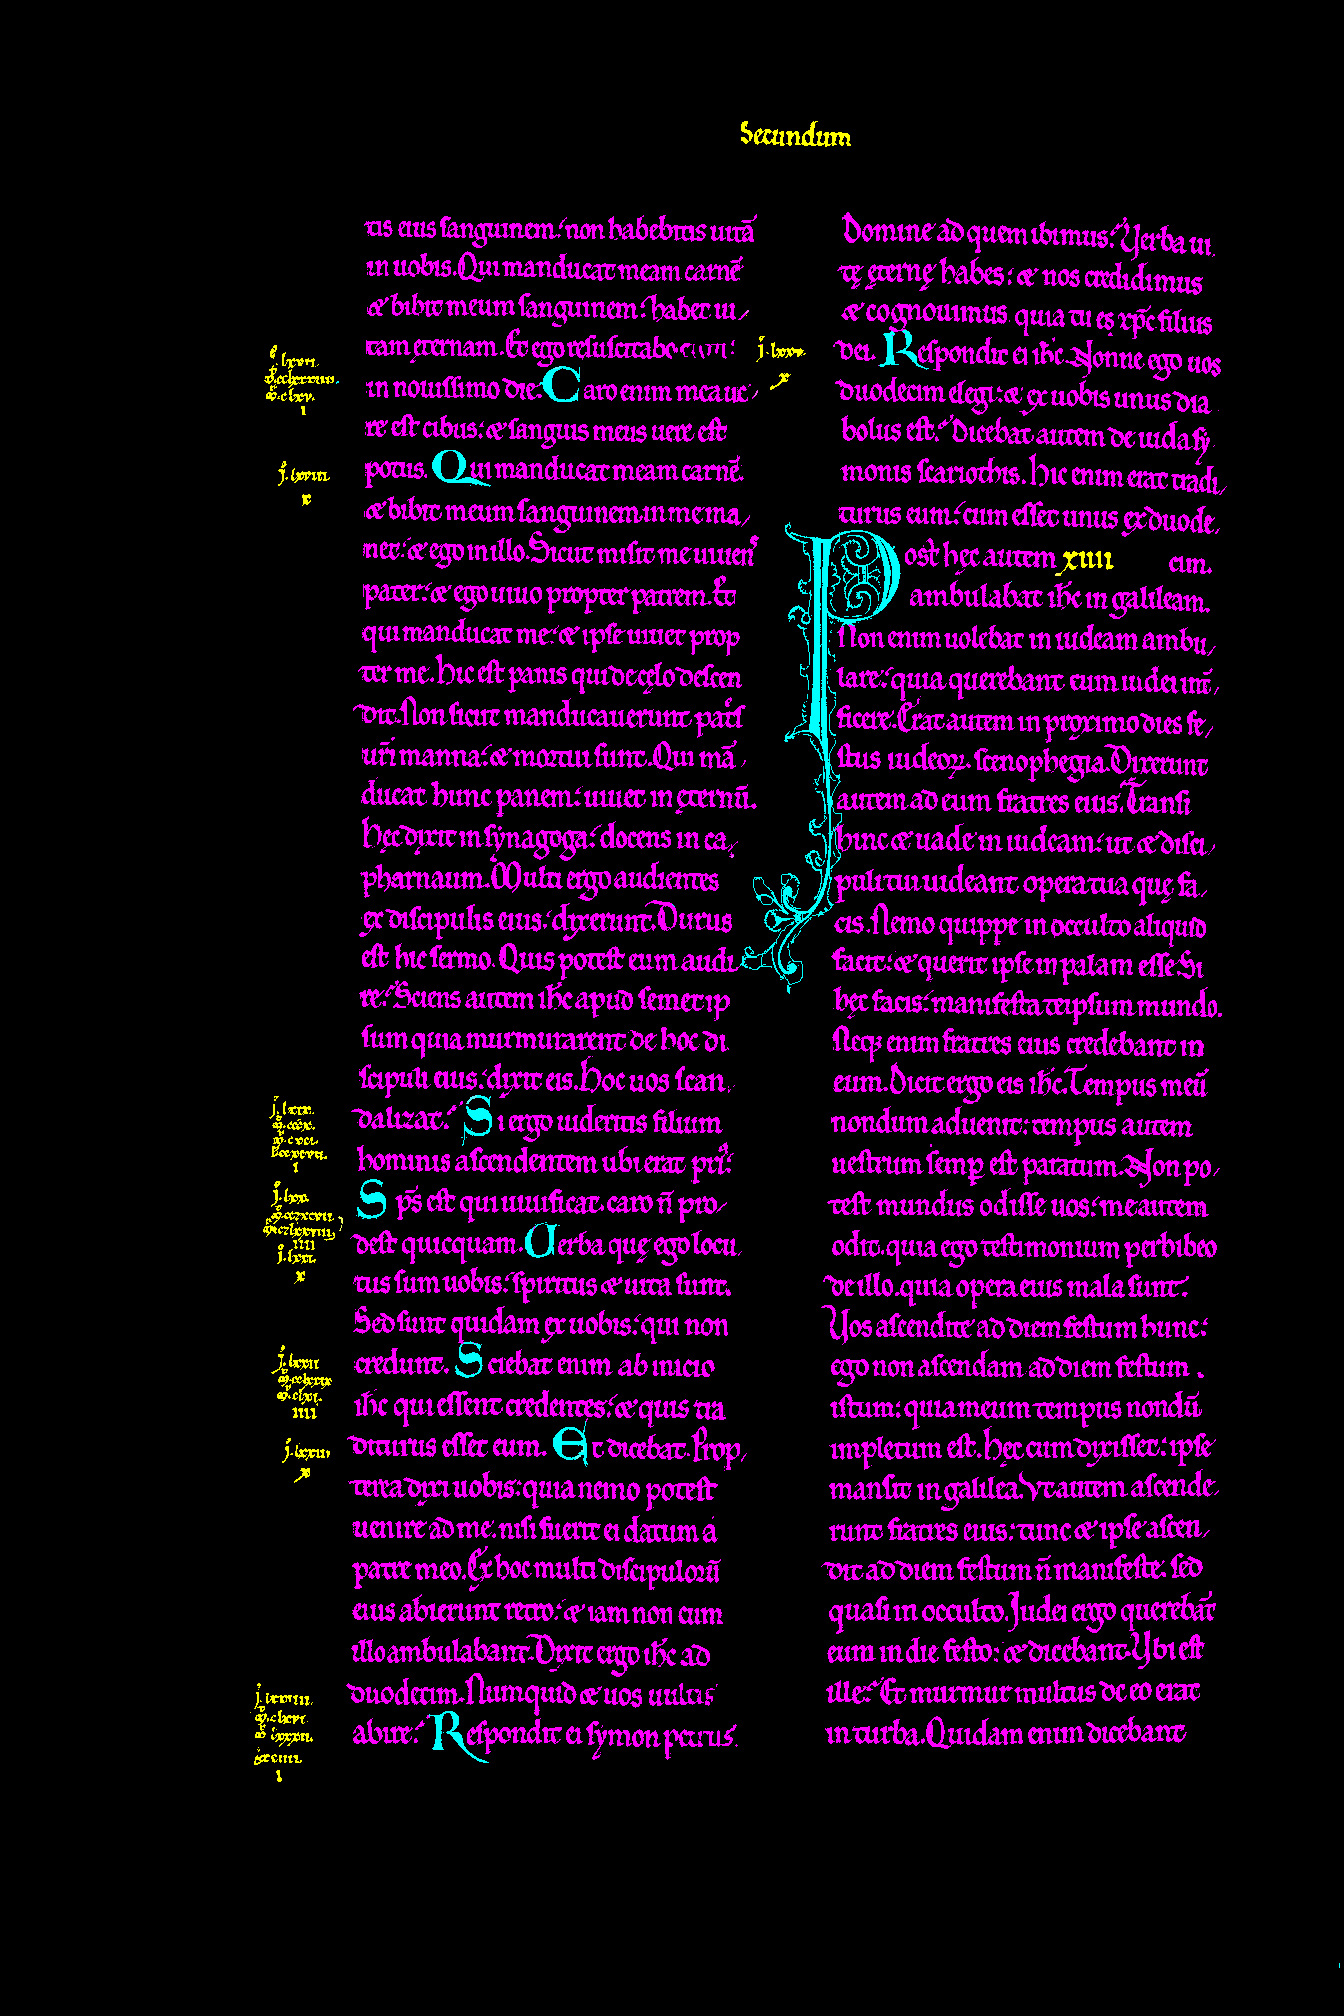 Secundum
tis eius sanguinem: non habebitis uitā
in uobis. Qui manducat meam carnē
& bibit meum sanguinem: habet ui
tam ęternam. Et ego resuscitabo eum:
in nouissimo die. Caro enim mea ue
re est cibus: & sanguis meus uere est
potus. Qui manducat meam carnē
& bibit meum sanguinem. in me ma
net: & ego in illo. Sicut misit me uiuens
pater: & ego uiuo propter patrem. Et
qui manducat me: & ipse uiuet prop
ter me. Hic est panis qui de cęlo descen
dit. Non sicut manducauerunt patres
ur̄i manna: & mortui sunt. Qui mā
ducat hunc panem: uiuet in ęternū.
Hęc dixit in synagoga: docens in ca
pharnaum. Multi ergo audientes
ex discipulis eius: dixerunt. Durus
est hic sermo. Quis potest eum audi
re? Sciens autem ih̄c apud semetip
sum quia murmurarent de hoc di
scipuli eius: dixit eis. Hoc uos scan
dalizat? Si ergo uideritis filium
hominis ascendentem ubi erat pri:
Sp̄s est qui uiuificat. caro n̄ pro
dest quicquam. Uerba quę ego locu
tus sum uobis: spiritus & uita sunt.
Sed sunt quidam ex uobis: qui non
credunt. Sciebat enim ab inicio
ih̄c qui essent credentes: & quis tra
diturus esset eum. Et dicebat. Prop
terea dixi uobis: quia nemo potest
uenire ad me. nisi fuerit ei datum a
patre meo. Ex hoc multi discipulorū
eius abierunt retro: & iam non cum
illo ambulabant. Dixit ergo ih̄c ad
duodecim. Numquid & uos uultis
abire? Respondit ei symon petrus.
Domine ad quem ibimus? Uerba ui
tę ęternę habes: & nos credidimus
& cognouimus quia tu es xp̄c filius
j. lxxv.
x
dei. Respondit ei ih̄c. Nonne ego uos
duodecim elegi: & ex uobis unus dia
bolus est? Dicebat autem de iuda sy
monis scariothis. Hic enim erat tradi
turus eum: cum esset unus ex duode
cim.
Post hęc autem xiiii
ambulabat ih̄c in galileam.
Non enim uolebat in iudeam ambu
lare: quia querebant eum iudei int̄
ficere. Erat autem in proximo dies fe
stus iudeoꝝ. scenophegia. Dixerunt
autem ad eum fratres eius. Transi
hinc & uade in iudeam: ut & disci
puli tui uideant opera tua quę fa
cis. Nemo quippe in occulto aliquid
facit: & querit ipse in palam esse. Si
hęc facis: manifesta teipsum mundo.
Neqꝫ enim fratres eius credebant in
eum. Dicit ergo eis ih̄c. Tempus meū
nondum aduenit: tempus autem
uestrum semꝑ est paratum. Non po
test mundus odisse uos: me autem
odit. quia ego testimonium perhibeo
de illo. quia opera eius mala sunt.
Uos ascendite ad diem festum hunc:
ego non ascendam ad diem festum
istum: quia meum tempus nondū
impletum est. Hęc cum dixisset: ipse
mansit in galilea. Vt autem ascende
runt fratres eius: tunc & ipse ascen
dit ad diem festum n̄ manifeste. sed
quasi in occulto. Judei ergo querebāt
eum in die festo: & dicebant. Ubi est
ille? Et murmur multus de eo erat
in turba. Quidam enim dicebant